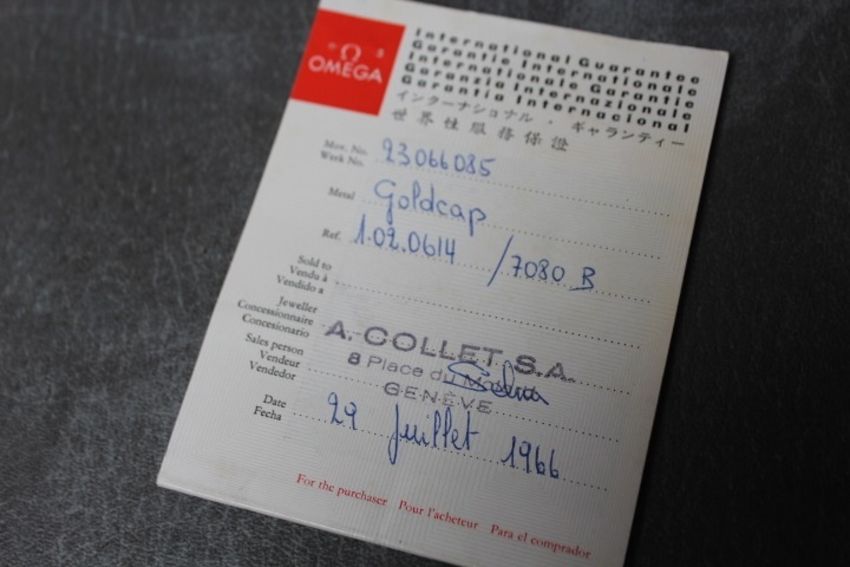 Ω
OMEGA
International Guarantee
Garantie Internationale
Internationale Garantie
Garanzia Internazionale
Garantia Internacional
インターナショナル・ギャランティー
世界性服務保證
Mov. No. 23066085
Week No.
Metal Goldcap
Ref. 1.02.0614 / 7080 B
Sold to
Vendu à
Vendido a
Jeweller
Concessionnaire
Concesionario
A. COLLET S.A.
8 Place du
GENÈVE
Sales person
Vendeur
Vendedor
Date 29 Juillet 1966
Fecha
For the purchaser Pour l'acheteur Para el comprador